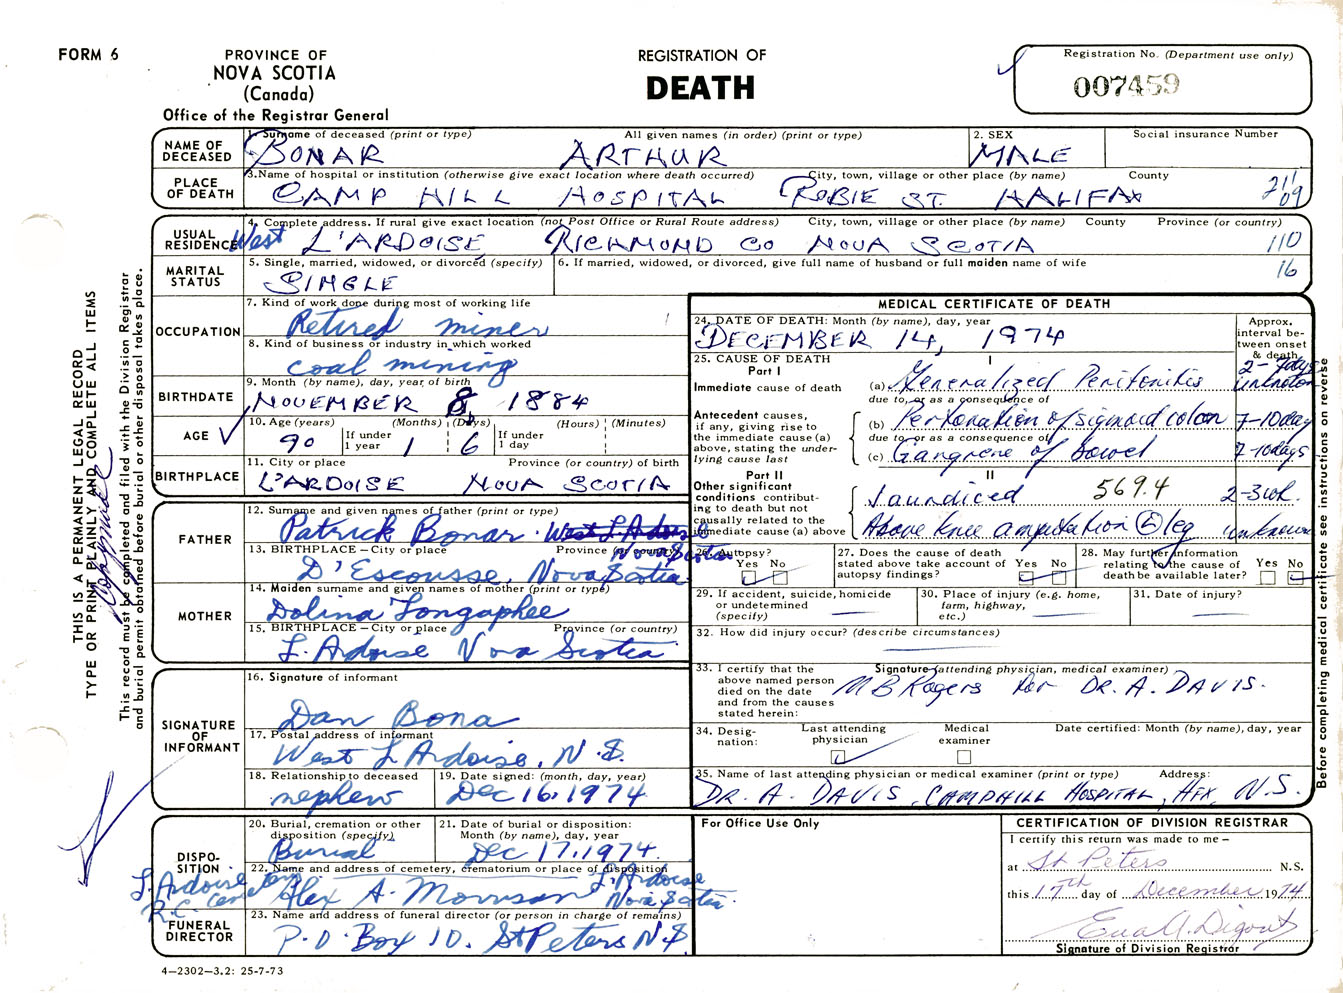 FORM 6
PROVINCE OF
NOVA SCOTIA
(Canada)
Office of the Registrar General
REGISTRATION OF
DEATH
Registration No. (Department use only)
007459
NAME OF DECEASED
1. Surname of deceased (print or type) All given names (in order) (print or type) 2. SEX Social insurance Number
BONAR ARTHUR MALE
PLACE OF DEATH
3. Name of hospital or institution (otherwise give exact location where death occurred) City, town, village or other place (by name) County
CAMP HILL HOSPITAL ROBIE ST. HALIFAX
211
09
USUAL RESIDENCE
4. Complete address. If rural give exact location (not Post Office or Rural Route address) City, town, village or other place (by name) County Province (or country)
West L'ARDOISE RICHMOND CO NOVA SCOTIA 110
MARITAL STATUS
5. Single, married, widowed, or divorced (specify) 6. If married, widowed, or divorced, give full name of husband or full maiden name of wife
SINGLE 16
OCCUPATION
7. Kind of work done during most of working life
Retired miner
8. Kind of business or industry in which worked
coal mining
BIRTHDATE
9. Month (by name), day, year of birth
NOVEMBER 8, 1884
AGE
10. Age (years) If under 1 year (Months) (Days) If under 1 day (Hours) (Minutes)
90 1 6
BIRTHPLACE
11. City or place Province (or country) of birth
L'ARDOISE NOVA SCOTIA
FATHER
12. Surname and given names of father (print or type)
Patrick Bonar. West L'Ardoise
13. BIRTHPLACE – City or place Province (or country)
Nova Scotia
D'Escousse, Nova Scotia
MOTHER
14. Maiden surname and given names of mother (print or type)
Dolina Longaphee
15. BIRTHPLACE – City or place Province (or country)
L. Ardoise Nova Scotia
SIGNATURE OF INFORMANT
16. Signature of informant
Dan Bona
17. Postal address of informant
West L Ardoise, N.S.
18. Relationship to deceased 19. Date signed: (month, day, year)
nephew Dec 16, 1974
DISPOSITION
20. Burial, cremation or other disposition (specify) 21. Date of burial or disposition: Month (by name), day, year
Burial Dec 17, 1974.
22. Name and address of cemetery, crematorium or place of disposition
L. Ardoise R.C. Cemetery
L. Ardoise Nova Scotia
Alex A. Morrison
FUNERAL DIRECTOR
23. Name and address of funeral director (or person in charge of remains)
P.O. Box 10. St Peters N.S
4—2302—3.2: 25-7-73
MEDICAL CERTIFICATE OF DEATH
24. DATE OF DEATH: Month (by name), day, year
DECEMBER 14, 1974
Approx. interval between onset & death
25. CAUSE OF DEATH
Part I
I
Immediate cause of death
(a) Generalized Peritonitis 2-7days unknown
due to, or as a consequence of
Antecedent causes, if any, giving rise to the immediate cause (a) above, stating the underlying cause last
(b) Perforation of sigmoid colon 7-10 day
due to, or as a consequence of
(c) Gangrene of bowel 7-10days
Part II
II
Other significant conditions contributing to death but not causally related to the immediate cause (a) above
Jaundiced 569.4 2-3wk.
Above knee amputation L leg unknown
26. Autopsy? Yes No
27. Does the cause of death stated above take account of autopsy findings? Yes No
28. May further information relating to the cause of death be available later? Yes No
29. If accident, suicide, homicide or undetermined (specify)
30. Place of injury (e.g. home, farm, highway, etc.)
31. Date of injury?
32. How did injury occur? (describe circumstances)
33. I certify that the above named person died on the date and from the causes stated herein:
Signature (attending physician, medical examiner)
M B Rogers for DR. A. DAVIS.
34. Designation: Last attending physician Medical examiner Date certified: Month (by name), day, year
35. Name of last attending physician or medical examiner (print or type) Address:
DR. A. DAVIS, CAMPHILL HOSPITAL, HFX, N.S.
For Office Use Only
CERTIFICATION OF DIVISION REGISTRAR
I certify this return was made to me –
at St Peters N.S.
this 17th day of December 1974
Signature of Division Registrar
THIS IS A PERMANENT LEGAL RECORD
TYPE OR PRINT PLAINLY AND COMPLETE ALL ITEMS
This record must be completed and filed with the Division Registrar
and burial permit obtained before burial or other disposal takes place.
Before completing medical certificate see instructions on reverse